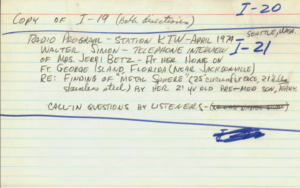 I-20
COPY OF I-19 (both directions)
RADIO PROGRAM - STATION KTW - APRIL 1974 - SEATTLE, WASH.
WALTER SIMON - TELEPHONE INTERVIEW I-21
OF MRS JERRI BETZ - AT HER HOME ON
FT. GEORGE ISLAND, FLORIDA (NEAR JACKSONVILLE)
RE: FINDING OF "METAL SPHERE" (25" circumference, 21 lbs
stainless steel) BY HER 21 YR OLD PRE-MED SON, TERRY.
CALL-IN QUESTIONS BY LISTENERS-